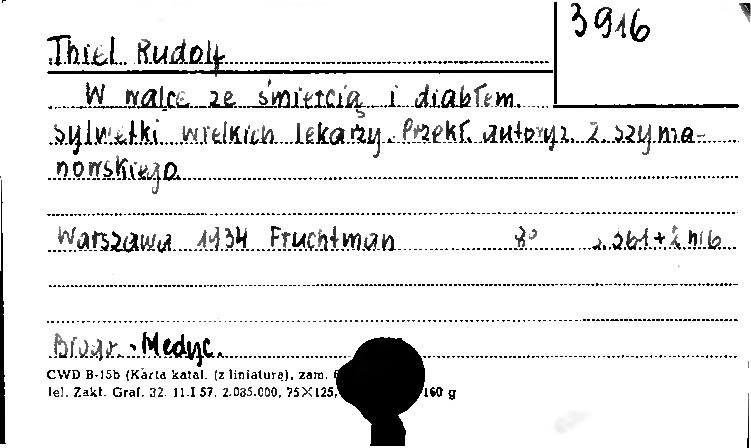 3916
Thiel Rudolf
W walce ze śmiercią i diabłem.
Sylwetki wielkich lekarzy. Przekł. autoryz. Z. Szyma-
nowskiego.
Warszawa 1934 Fruchtman 8° s. 361+2 nlb
Biogr. Medyc.
CWD B-15b (Karta katal. (z liniaturą), zam.
Tel. Zakł. Graf. 32. 11.I 57. 2.085.000, 75×125, 160 g